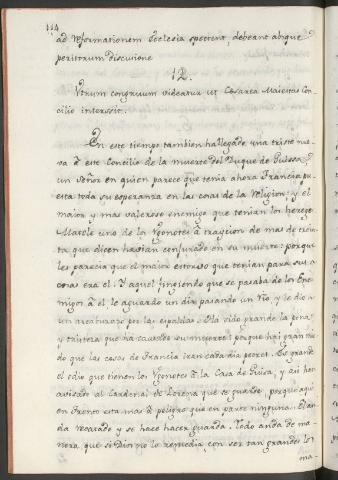 114
ad reformationem Ecclesiæ spectent, debeant absque
peritorum discusione
12.
Vtrum congruum videatur ut Cæsarea Maiestas Con
cilio intersit.
En este tiempo tambien ha llegado una triste nue
va a este Concilio de la muerte del Duque de Guissa q̃
un Señor en quien parece que tenia ahora Francia pu
esta toda su esperanza en las cosas de la Religion: y el
maior y mas valeroso enemigo que tenian los hereges
Matole uno de los Vgonotes a traycion de mas de trein
ta que dicen havian conjurado en su muerte: porque
les parecia que el maior estorvo que tenian para sus
cosas era el: Y aquel fingiendo que se pasaba de los Ene
migos a el le aguardo un dia pasando un rio, y le dio
un arcabuzazo por las espaldas. Ha sido grande la pena,
y tristeza que ha causado su muerte: porque hai gran mie
do que las cosas de Francia iran cada dia peor. Es grande
el odio que tienen los Vgonotes a la Casa de Guisa, y asi han
avisado al Cardenal de Lorena que se guarde, porque aqui
en Trento esta mas a peligro que en parte ninguna. El an
da recatado y se hace hacer guarda. Todo anda de ma
nera, que si Dios no lo remedia, con ser tan grandes los
ma-